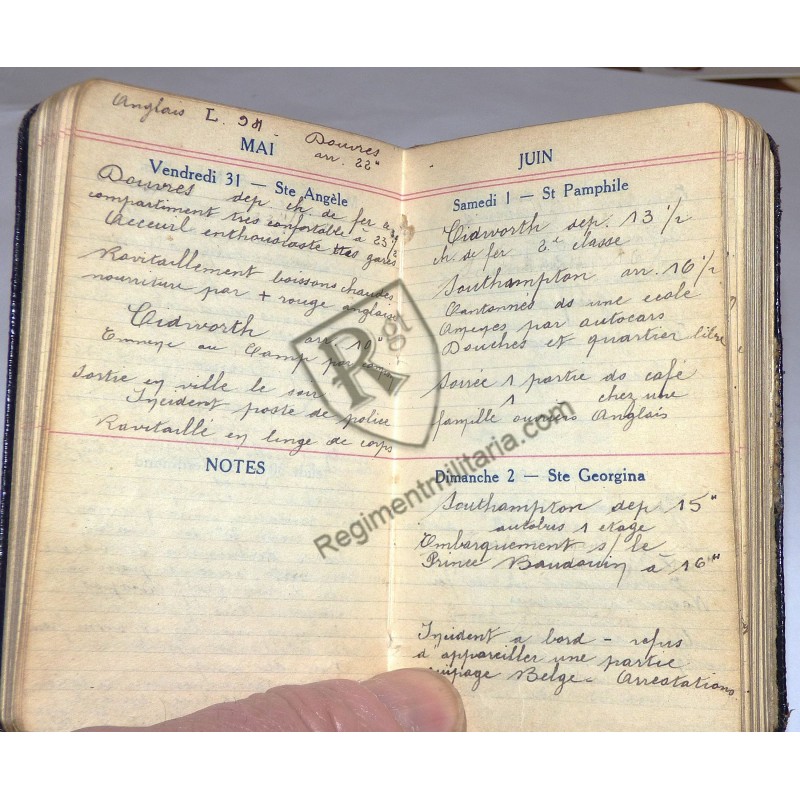 Anglais L. 91 - Douvres
arr. 22"
MAI
Vendredi 31 — Ste Angèle
Douvres dep ch. de fer
compartiment très confortable à 23 1/2
Acceuil enthousiaste ttes gares
Ravitaillement boissons chaudes
nourriture par + rouge anglaise
Tidworth arr. 10"
au Camp par
Sortie en ville le soir
Incident poste de police
Ravitaillé en linge de corps
NOTES
JUIN
Samedi 1 — St Pamphile
Tidworth dep. 13 1/2
ch. de fer 2e classe
Southampton arr. 16 1/2
Cantonnés ds une ecole
par autocars
Douches et quartier libre
Soirée 1 partie ds café
1 chez une
famille ouvriers Anglais
Dimanche 2 — Ste Georgina
Southampton dep 15"
autobus 1 etage
Embarquement s/ le
Prince Baudouin à 16"
Incident a bord - refus
d'appareiller une partie
equipage Belge - Arrestations
Rgt
Regimentmilitaria.com